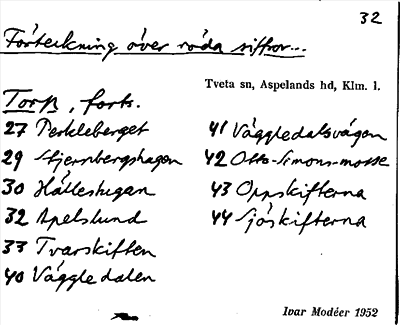 32
Förteckning över röda siffror...
Tveta sn, Aspelands hd, Klm. l.
Torp, forts.
27 Perkleberget
29 Stjernbergshagen
30 Hälleshagan
32 Apelslund
33 Tvärskiften
40 Väggledalen
41 Väggledalsvägen
42 Otto-Simons-mosse
43 Oppskifterna
44 Sjöskifterna
Ivar Modéer 1952